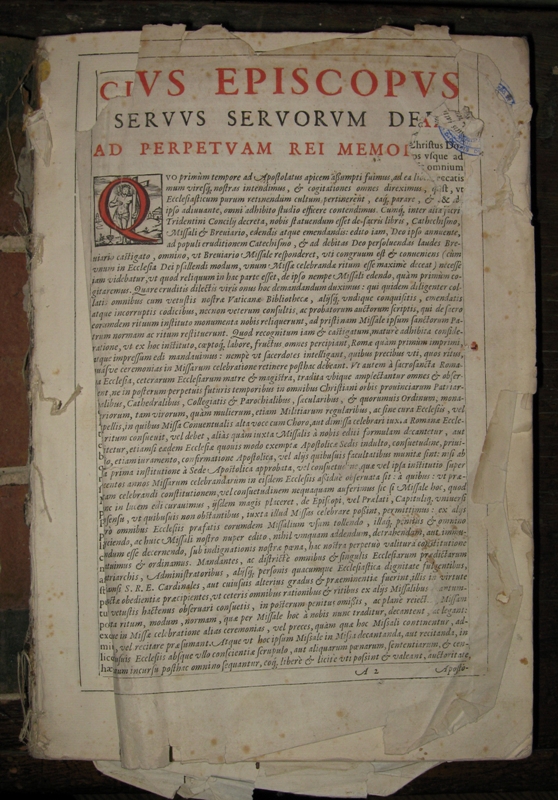 CIVS EPISCOPVS
SERVVS SERVORVM DE
AD PERPETVAM REI MEMO
Christus Do-
os vsque ad
omnium
QVO primùm tempore ad Apostolatus apicem assumpti fuimus, ad ea eccatis
mum viresq, nostras intendimus, & cogitationes omnes direximus, st, vt
Ecclesiasticum purum retinendum cultum pertinerent, eaq, parare, & d
ipso adiuuante, omni adhibito studio efficere contendimus. Cumq, inter alia sacri
Tridentini Concilij decreta, nobis statuendum esset de sacris libris, Cathechismo,
Missali & Breuiario, edendis atque emendandis: edito iam, Deo ipso annuente,
ad populi eruditionem Catechismo, & ad debitas Deo persoluendas laudes Bre-
uiario castigato, omnino, vt Breuiario Missale responderet, vti congruum est & conueniens (cum
vnum in Ecclesia Dei psallendi modum, vnum Missæ celebrandæ ritum esse maximè deceat) necesse
iam videbatur, vt quod reliquum in hac parte esset, de ipso nempe Missali edendo, quàm primùm co-
gitaremus. Quare eruditis dilectis viris onus hoc demandandum duximus: qui quidem diligenter col-
latis omnibus cum vetustis nostræ Vaticanæ Bibliothecæ, alijsq, vndique conquisitis, emendatis
atque incorruptis codicibus, necnon veterum consultis, ac probatorum auctorum scriptis, qui de sacro
eorumdem rituum instituto monumenta nobis reliquerunt, ad pristinam Missale ipsum sanctorum Pa-
trum normam ac ritum restituerunt. Quod recognitum iam & castigatum, maturè adhibita conside-
ratione, vt ex hoc instituto, cœptoq, labore, fructus omnes percipiant, Romæ quàm primùm imprimi,
atque impressum edi mandauimus: nempè vt sacerdotes intelligant, quibus precibus vti, quos ritus,
quasve ceremonias in Missarum celebratione retinere posthac debeant. Vt autem à sacrosancta Roma-
na Ecclesia, ceterarum Ecclesiarum matre & magistra, tradita vbique amplectantur omnes & obser-
ent, ne in posterum perpetuis futuris temporibus in omnibus Christiani orbis prouinciarum Patriar-
alibus, Cathedralibus, Collegiatis & Parochialibus, sæcularibus, & quorumuis Ordinum, mona-
riorum, tam virorum, quàm mulierum, etiam Militiarum regularibus, ac sine cura Ecclesijs, vel
pellis, in quibus Missa Conuentualis alta voce cum Choro, aut dimissa celebrari iuxta Romanæ Eccle-
ritum consueuit, vel debet, alias quàm iuxta Missalis à nobis editi formulam decantetur, aut
itetur, etiamsi eædem Ecclesiæ quouis modo exemptæ Apostolicæ Sedis indulto, consuetudine, priui-
io, etiam iuramento, confirmatione Apostolica, vel alijs quibusuis facultatibus munitæ sint: nisi ab
sa prima institutione à Sede Apostolica approbata, vel consuetudine, quæ vel ipsa institutio super
centos annos Missarum celebrandarum in eisdem Ecclesijs assiduè obseruata sit: à quibus vt præ-
am celebrandi constitutionem, vel consuetudinem nequaquam auferimus sic si Missale hoc, quod
nc in lucem edi curauimus, ijsdem magis placeret, de Episcopi, vel Prælati, Capituliq, vniuersi
nsensu, vt quibusuis non obstantibus, iuxta illud Missas celebrare possint, permittimus: ex alijs
rò omnibus Ecclesijs præfatis eorumdem Missalium vsum tollendo, illaq, penitus & omnino
ijciendo, ac huic Missali nostro nuper edito, nihil vnquam addendum, detrahendum, aut immu-
ndum esse decernendo, sub indignationis nostræ pœna, hac nostra perpetuò valitura constitutione
atuimus & ordinamus. Mandantes, ac districtè omnibus & singulis Ecclesiarum prædictarum
atriarchis, Administratoribus, alijsq, personis quacumque Ecclesiastica dignitate fulgentibus,
tiamsi S. R. E. Cardinales, aut cuiusuis alterius gradus & præeminentiæ fuerint, illis in virtute
nctæ obedientiæ præcipientes, vt ceteris omnibus rationibus & ritibus ex alijs Missalibus
vetustis hactenus obseruari consuetis, in posterum penitus omissis, ac planè reiectis, Missam
xta ritum, modum, normam, quæ per Missale hoc à nobis nunc traditur, decantent, ac legant:
eque in Missæ celebratione alias ceremonias, vel preces, quàm quæ hoc Missali continentur, ad-
re, vel recitare præsumant. Atque vt hoc ipsum Missale in Missa decantanda, aut recitanda, in
quibusuis Ecclesijs absque vllo conscientiæ scrupulo, aut aliquarum pœnarum, sententiarum, & cen-
arum incursu posthac omnino sequantur, eoq, liberè & licitè vti possint & valeant, auctoritate
A 2 Aposto-